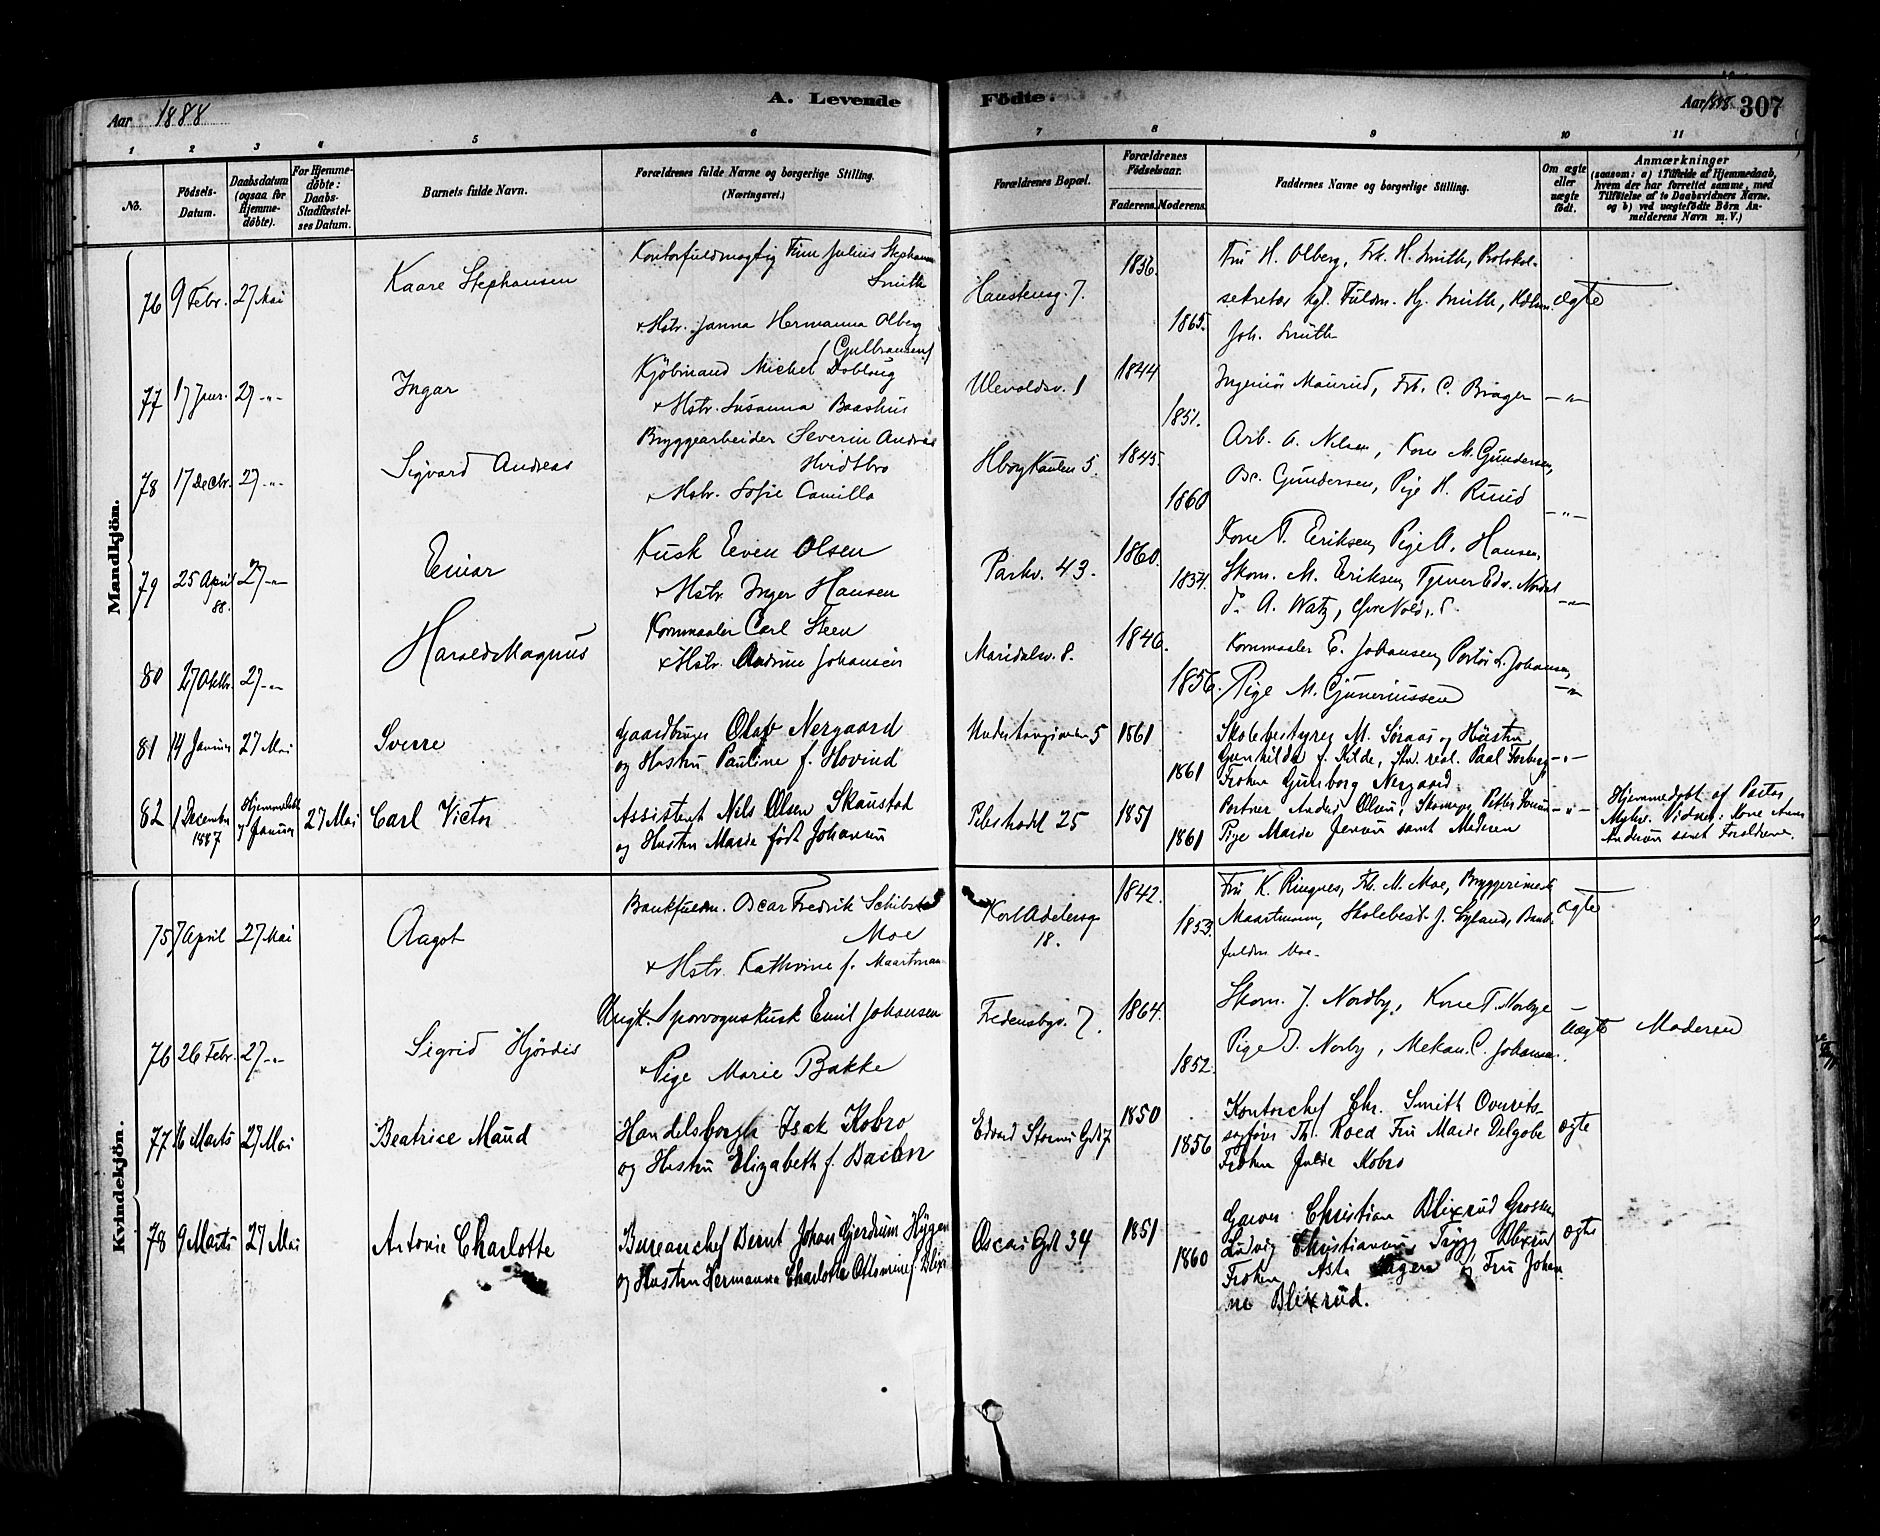 Aar 1888
A. Levende
Födte.
Aar 1888 307
1 2 3 4 5 6 7 8 9 10 11
No.
Födsels-Datum.
Daabsdatum (ogsaa for Hjemme-døbte).
For Hjemme-døbte: Daabs-Stadfæstel-ses Datum.
Barnets fulde Navn.
Forældrenes fulde Navne og borgerlige Stilling. (Næringsvei.)
Forældrenes Bopæl.
Forældrenes Födselsaar.
Faderens. Moderens.
Faddernes Navne og borgerlige Stilling.
Om ægte eller uægte født.
Anmærkninger
(saasom: a) i Tilfælde af Hjemmedaab, hvem der har forrettet samme, med Tilföielse af to Daabsvidners Navne. og b) ved uægtefødte Börn Anmelderens Navn m. V.)
Mandkjön.
76 9 Febr. 27 Mai Kaare Stephansen
Kontorfuldmægtig Finn Julius Stephansen
Smith
+ Hstr. Janna Hermanna Olberg
Haustensg. 7. 1856. 1865.
Fru H. Olberg, Frk. H. Smith, Protokol-
sekretær Kgl. Fuldm. Hj. Smith,
Joh. Smith
ægte
77 17 Janr. 27 -"- Ingar
(Gulbransen)
Kjöbmand Michel Dobloug
+ Hstr. Susanna Baashus
Ulevoldsv. 1 1844 1851.
Ingeniör Maurud, Frk. C. Bräger -"-
78 17 Decbr. 27 -"- Sigvard Andreas
Bryggearbeider Severin Andreas
Hvidtbro
+ Hstr. Sofie Camilla
5. 1845. 1860
Arb. A. Nilsen, Kone M. Gundersen,
Gundersen, Pige H. Ruud -"-
79 25 April 88. 27 -"- Einar
Kusk Even Olsen
+ Hstr. Inger Hansen
Parkv. 43. 1860. 1854.
Kone T. Eriksen, Pige A. Hansen,
Skom. M. Eriksen,
-"-
80 27 Oktbr. 27 -"- Harald Magnus
Kornmaaler Carl Steen
+ Hstr. Andrine Johansen
Maridalsv. 8. 1846. 1856.
Kornmaaler E. Johansen, Portör L. Johansen,
Pige M. Guneriussen -"-
81 14 Januar 27 Mai Sverre
Gaardbruger Olav Nergaard
og Hustru Pauline f. Hovind
5 1861 1861
Skolebestyrer M. Söraas og Hustru
Gunhilda f. Kilde, Stud. real. Paal Forberg
Fröken Gunborg Nergaard -"-
82 1 December 1887 Hjemmedöbt 7 Januar 27 Mai Carl Victor
Assistent Nils Olsen Skaustad
og Hustru Marie født Johansen
Pilestrædet 25 1851 1861
Portner Anders Olsen, Skomager
Pige Marie Jensen samt Moderen -"-
Hjemmedøbt af Pastor
Vidner: Kone
Andersen samt Forældrene.
Kvindekjön.
75 7 April 27 Mai Aagot
Bankfuldm. Oscar Fredrik Schibsted
Moe
+ Hstr. Kathrine f. Maartmann
Korl Adelersg. 18. 1842. 1853.
Fru K. Ringnes, Frk. M. Moe, Bryggerimester
Maartmann, Skolebest. J. Nyland, Bank-
fuldm. Moe. ægte
76 26 Febr. 27 -"- Sigrid Hjördis
Ungk. Sporvognskusk Emil Johansen
+ Pige Marie Bakke
Fredensbgv. 7. 1864. 1852.
Skom. J. Nordby, Kone T. Norbye
Pige J. Norby, Mekan. C. Johansen. Uægte Moderen
77 16 Marts 27 Mai Beatrice Maud
Handelsborger Isak Kobro
og Hustru Elizabeth f. Bacon
Edvard Storms Gd. 7 1850 1856
Kontorchef Chr. Smith Overrets-
sagfører Th. Roed Fru Marie Delgobe
Fröken Julie Kobro ægte
78 9 Marts 27 Mai Antonie Charlotte
Bureauchef Bernt Johan Gjerdrum Hygen
og Hustru Hermanna Charlotte Ottomine f. Blix
Oscars Gd 34 1851 1860
Garver Christian Blixrud Grosserer
Ludvig Christiansen, Trygg Blixrud
Fröken Asta Hagen og Fru Johan-
ne Blixrud. ægte